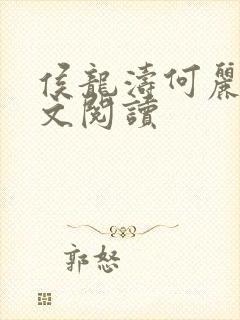 侯龍濤何麗
文閱讀
郭怒